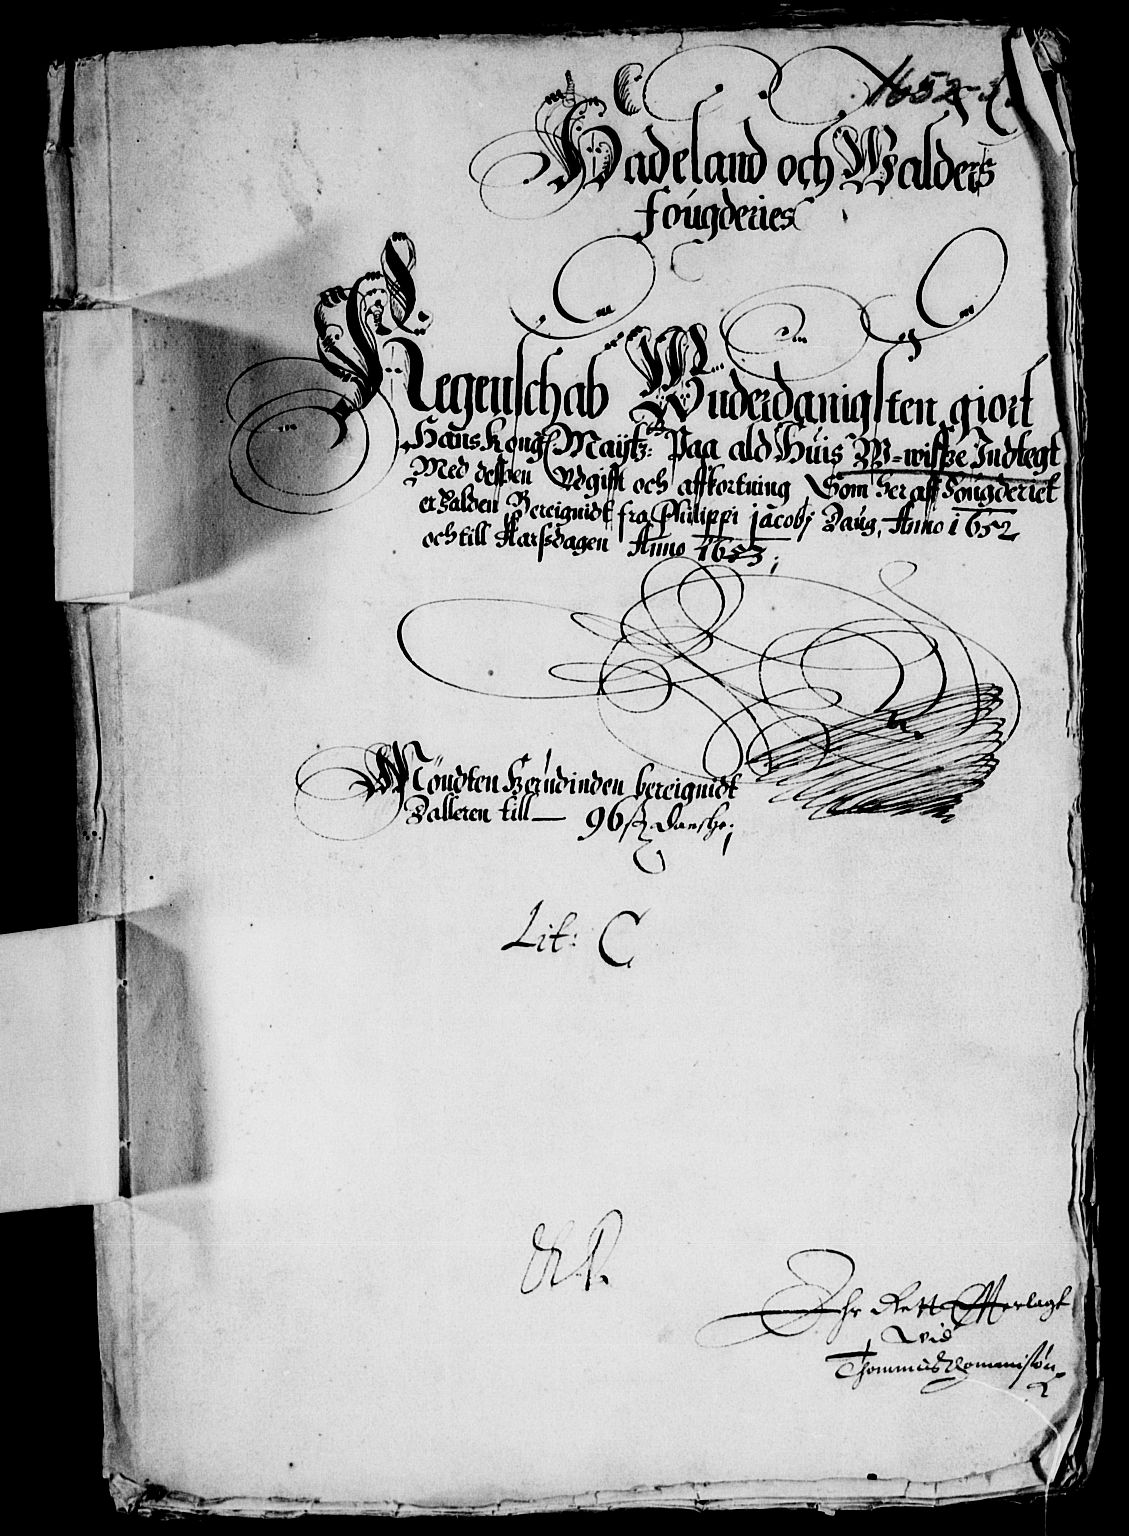 1652-3.
Hadeland och Walders
fougderies
Regenschab Wnderdanigsten giort
Hans Kong: Maÿtz: Paa ald Huis W-wisse Indtegt
Med dessen Vdgifft och affkortning Som her aff fougderiet
er falden Bereignidt fra Philippi jacobj Daug, Anno 1652
och till Aarsdagen Anno 1653;
Möndten herudinden bereignidt
Dalleren till — 96 ß danske;
Lit: C
Er Rett Offuerlagt
Vid